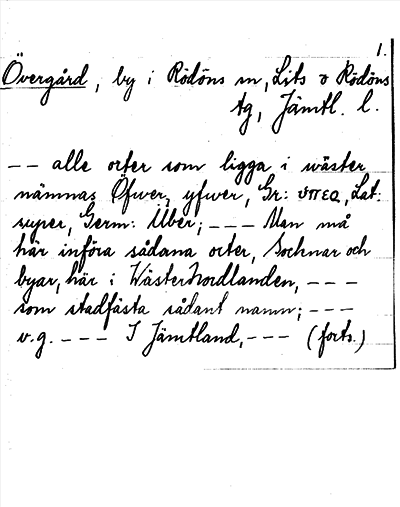 1.
Övergård, by i Rödöns sn, Lits o Rödöns
tg, Jämtl. l.
-- alle orter som ligga i wäster
nämnas Öfwer, yfwer, Gr: ὑπερ, Lat:
super, Germ: Über; --- Man må
här införa sådana orter, Sochnar och
byar, här i WästerNordlanden, ---
som stadfästa sådant namn; ---
v.g. --- I Jämtland, --- (forts.)